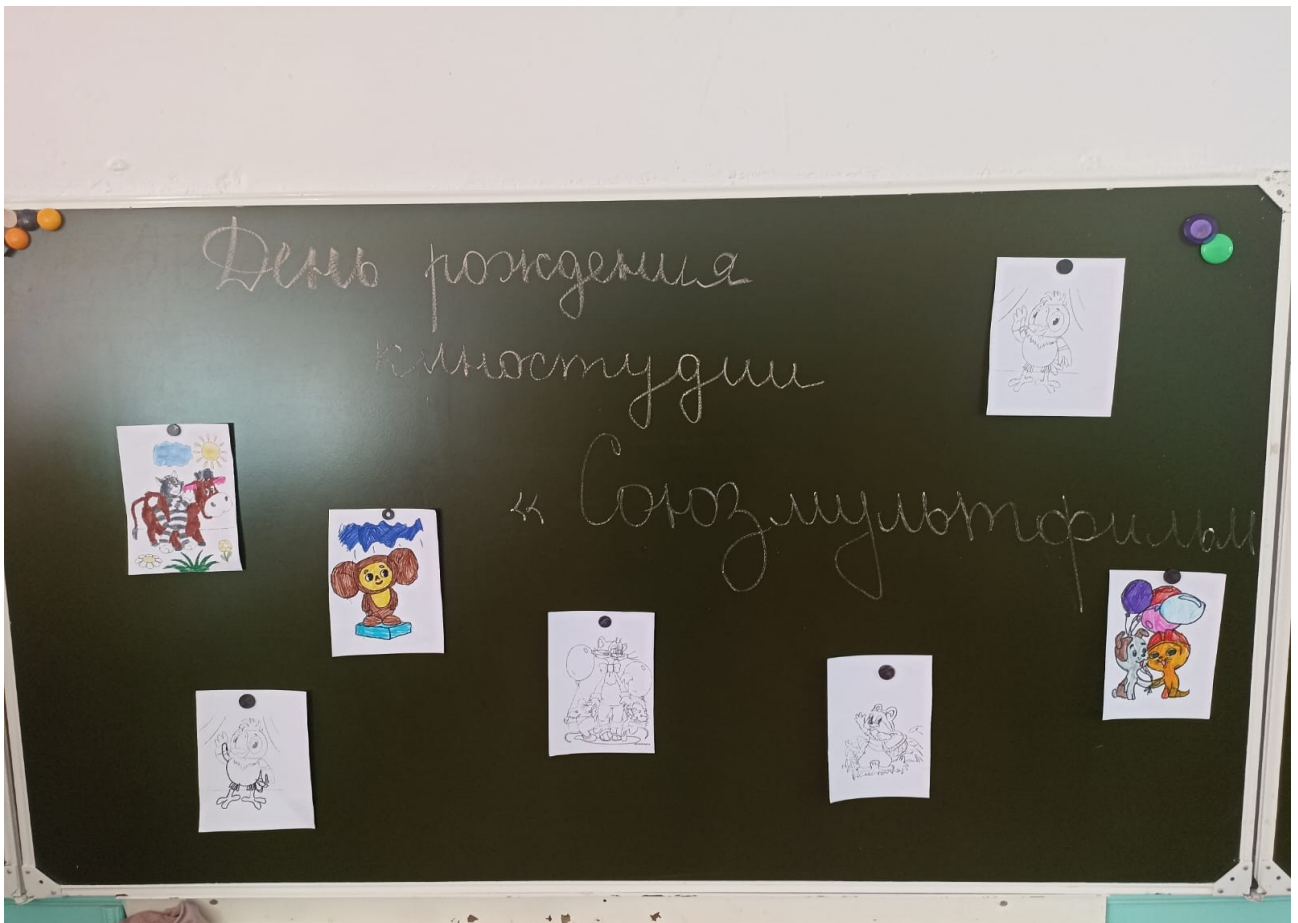 День рождения
киностудии
« Союзмультфильм